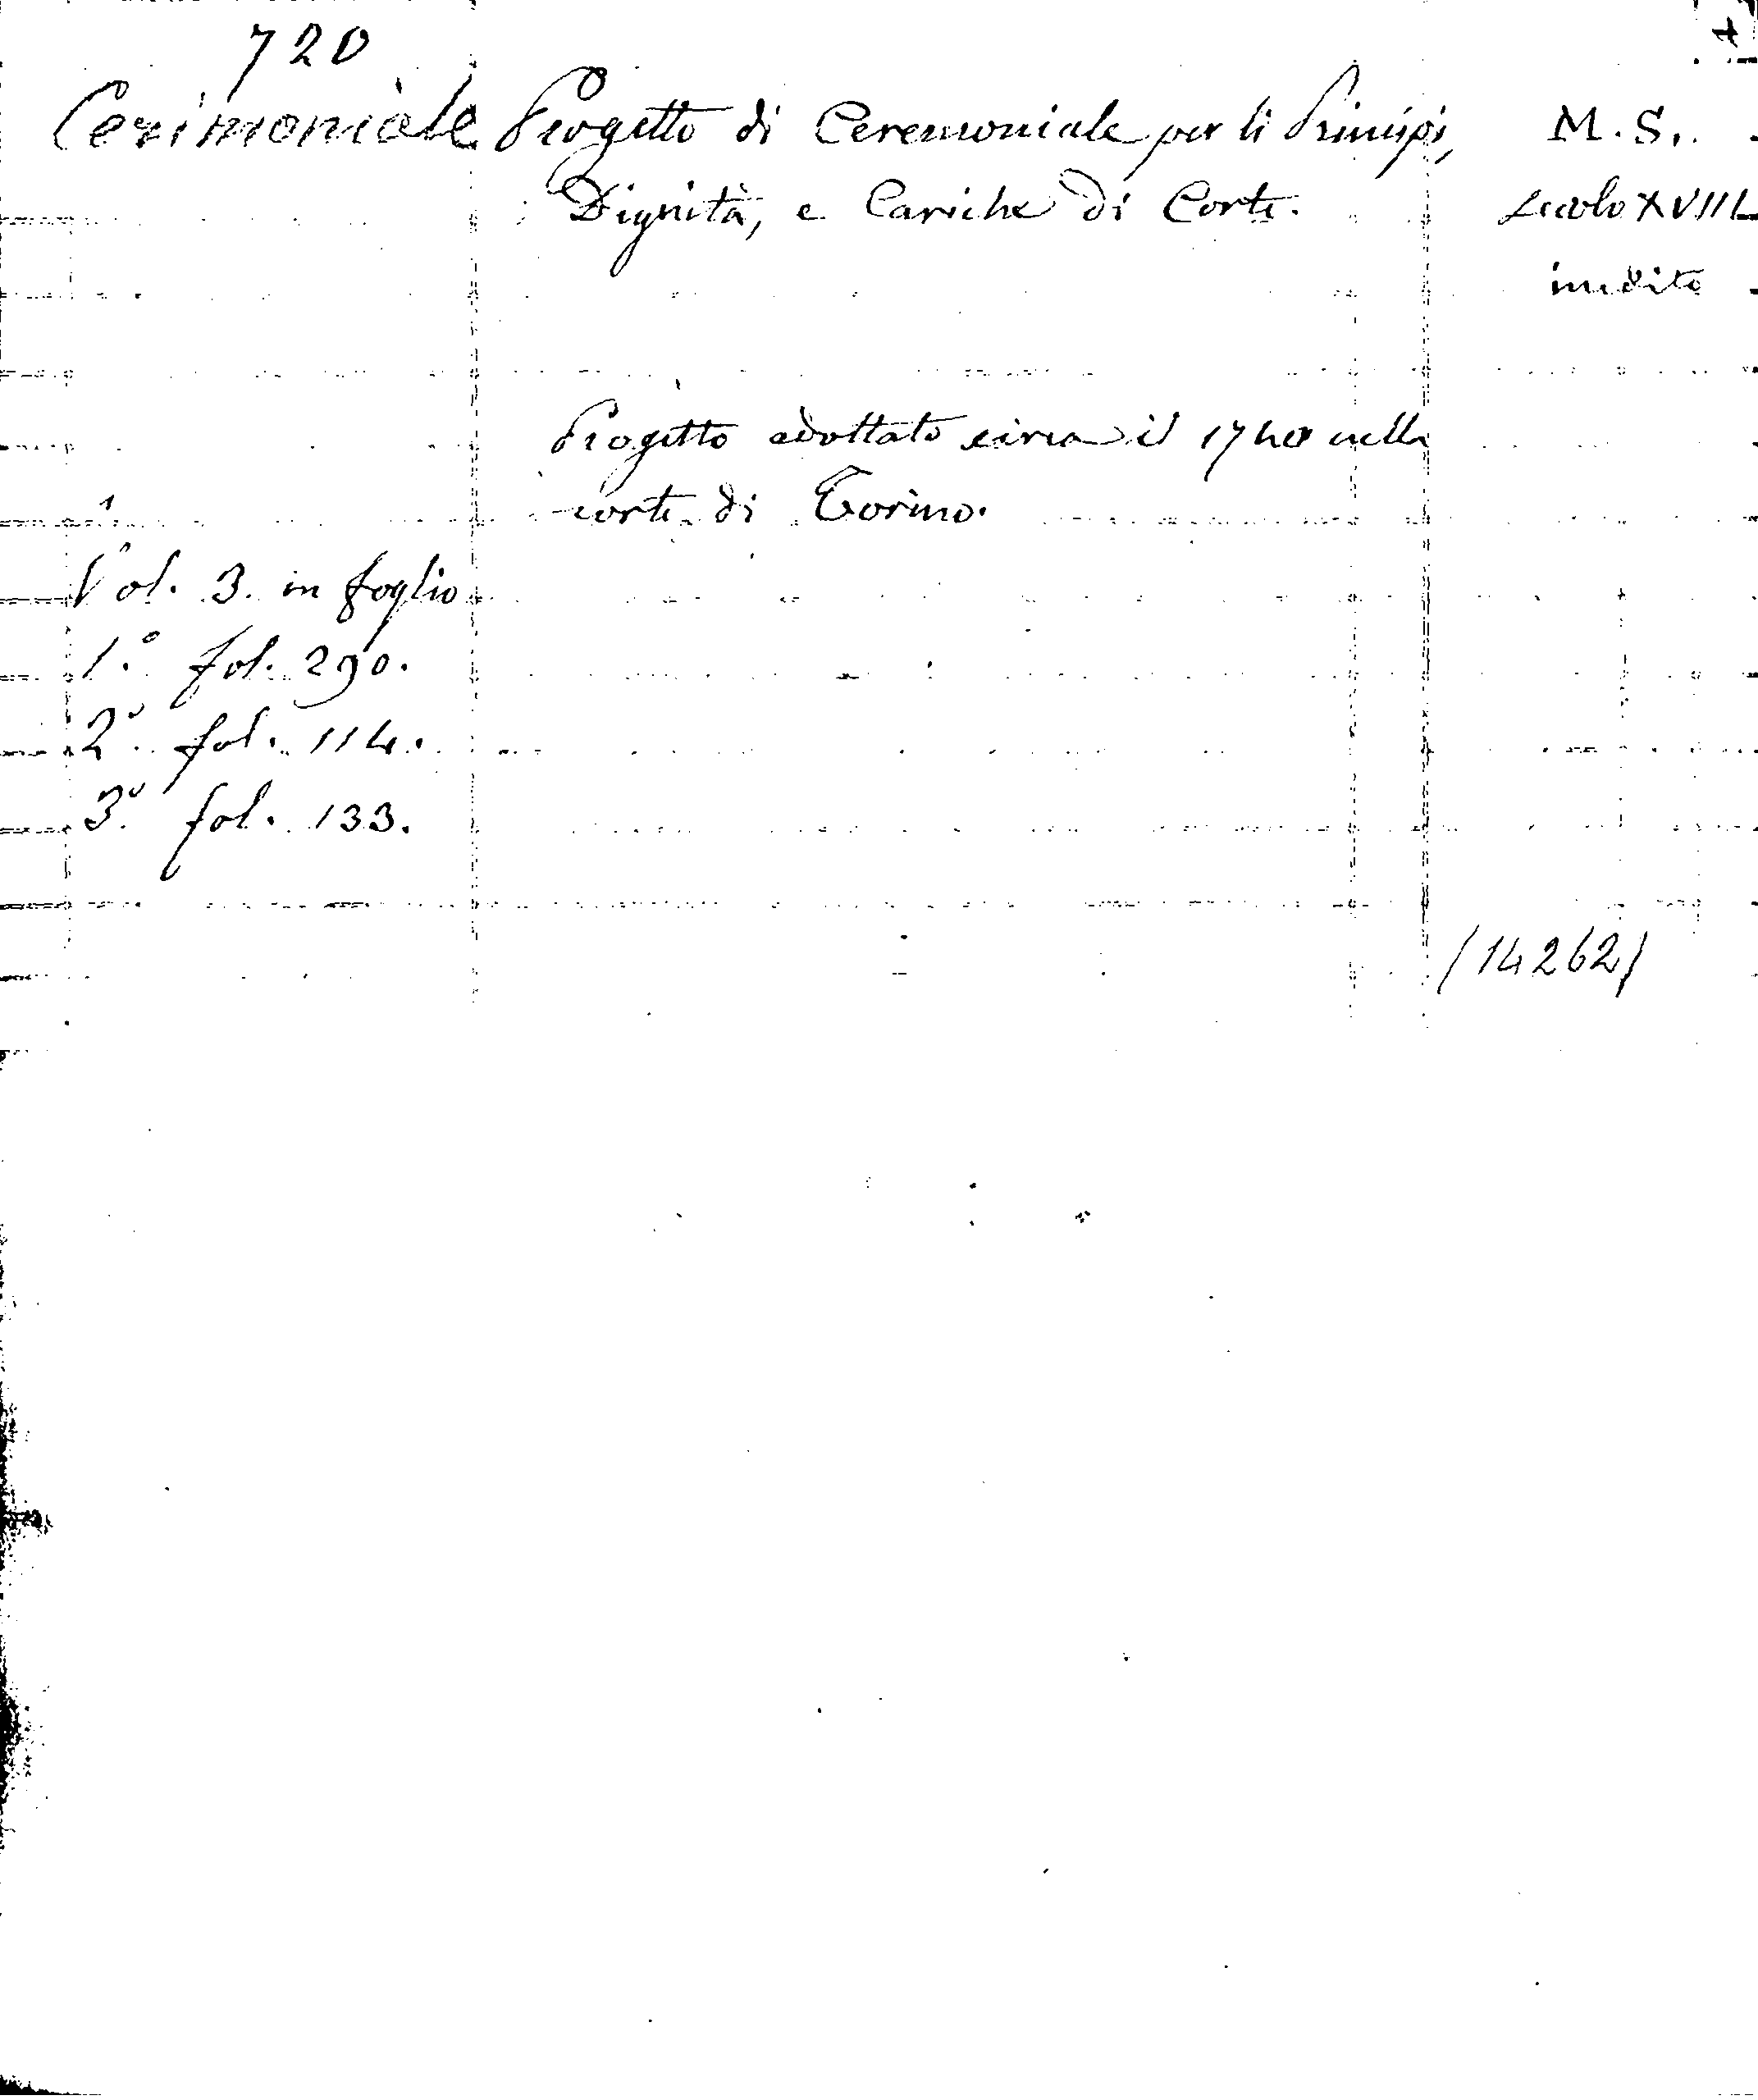 720
Cerimoniale
Progetto di Ceremoniale per li Principi,
Dignità, e Cariche di Corte.
M. S.
secolo XVIII
inedito
Progetto adottato circa il 1740 nella
corte di Torino.
Vol. 3. in foglio
1.° fol. 290.
2.° fol. 114.
3.° fol. 133.
(14262)